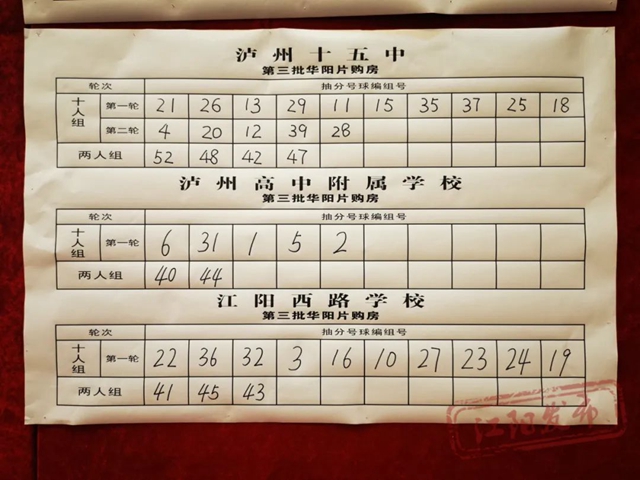 泸州十五中
第三批华阳片购房
轮次 抽分号球编组号
十人组 第一轮 21 26 13 29 11 15 35 37 25 18
第二轮 4 20 12 39 28
两人组 52 48 42 47
泸州高中附属学校
第三批华阳片购房
轮次 抽分号球编组号
十人组 第一轮 6 31 1 5 2
两人组 40 44
江阳西路学校
第三批华阳片购房
轮次 抽分号球编组号
十人组 第一轮 22 36 32 3 16 10 27 23 24 19
两人组 41 45 43
江阳发布